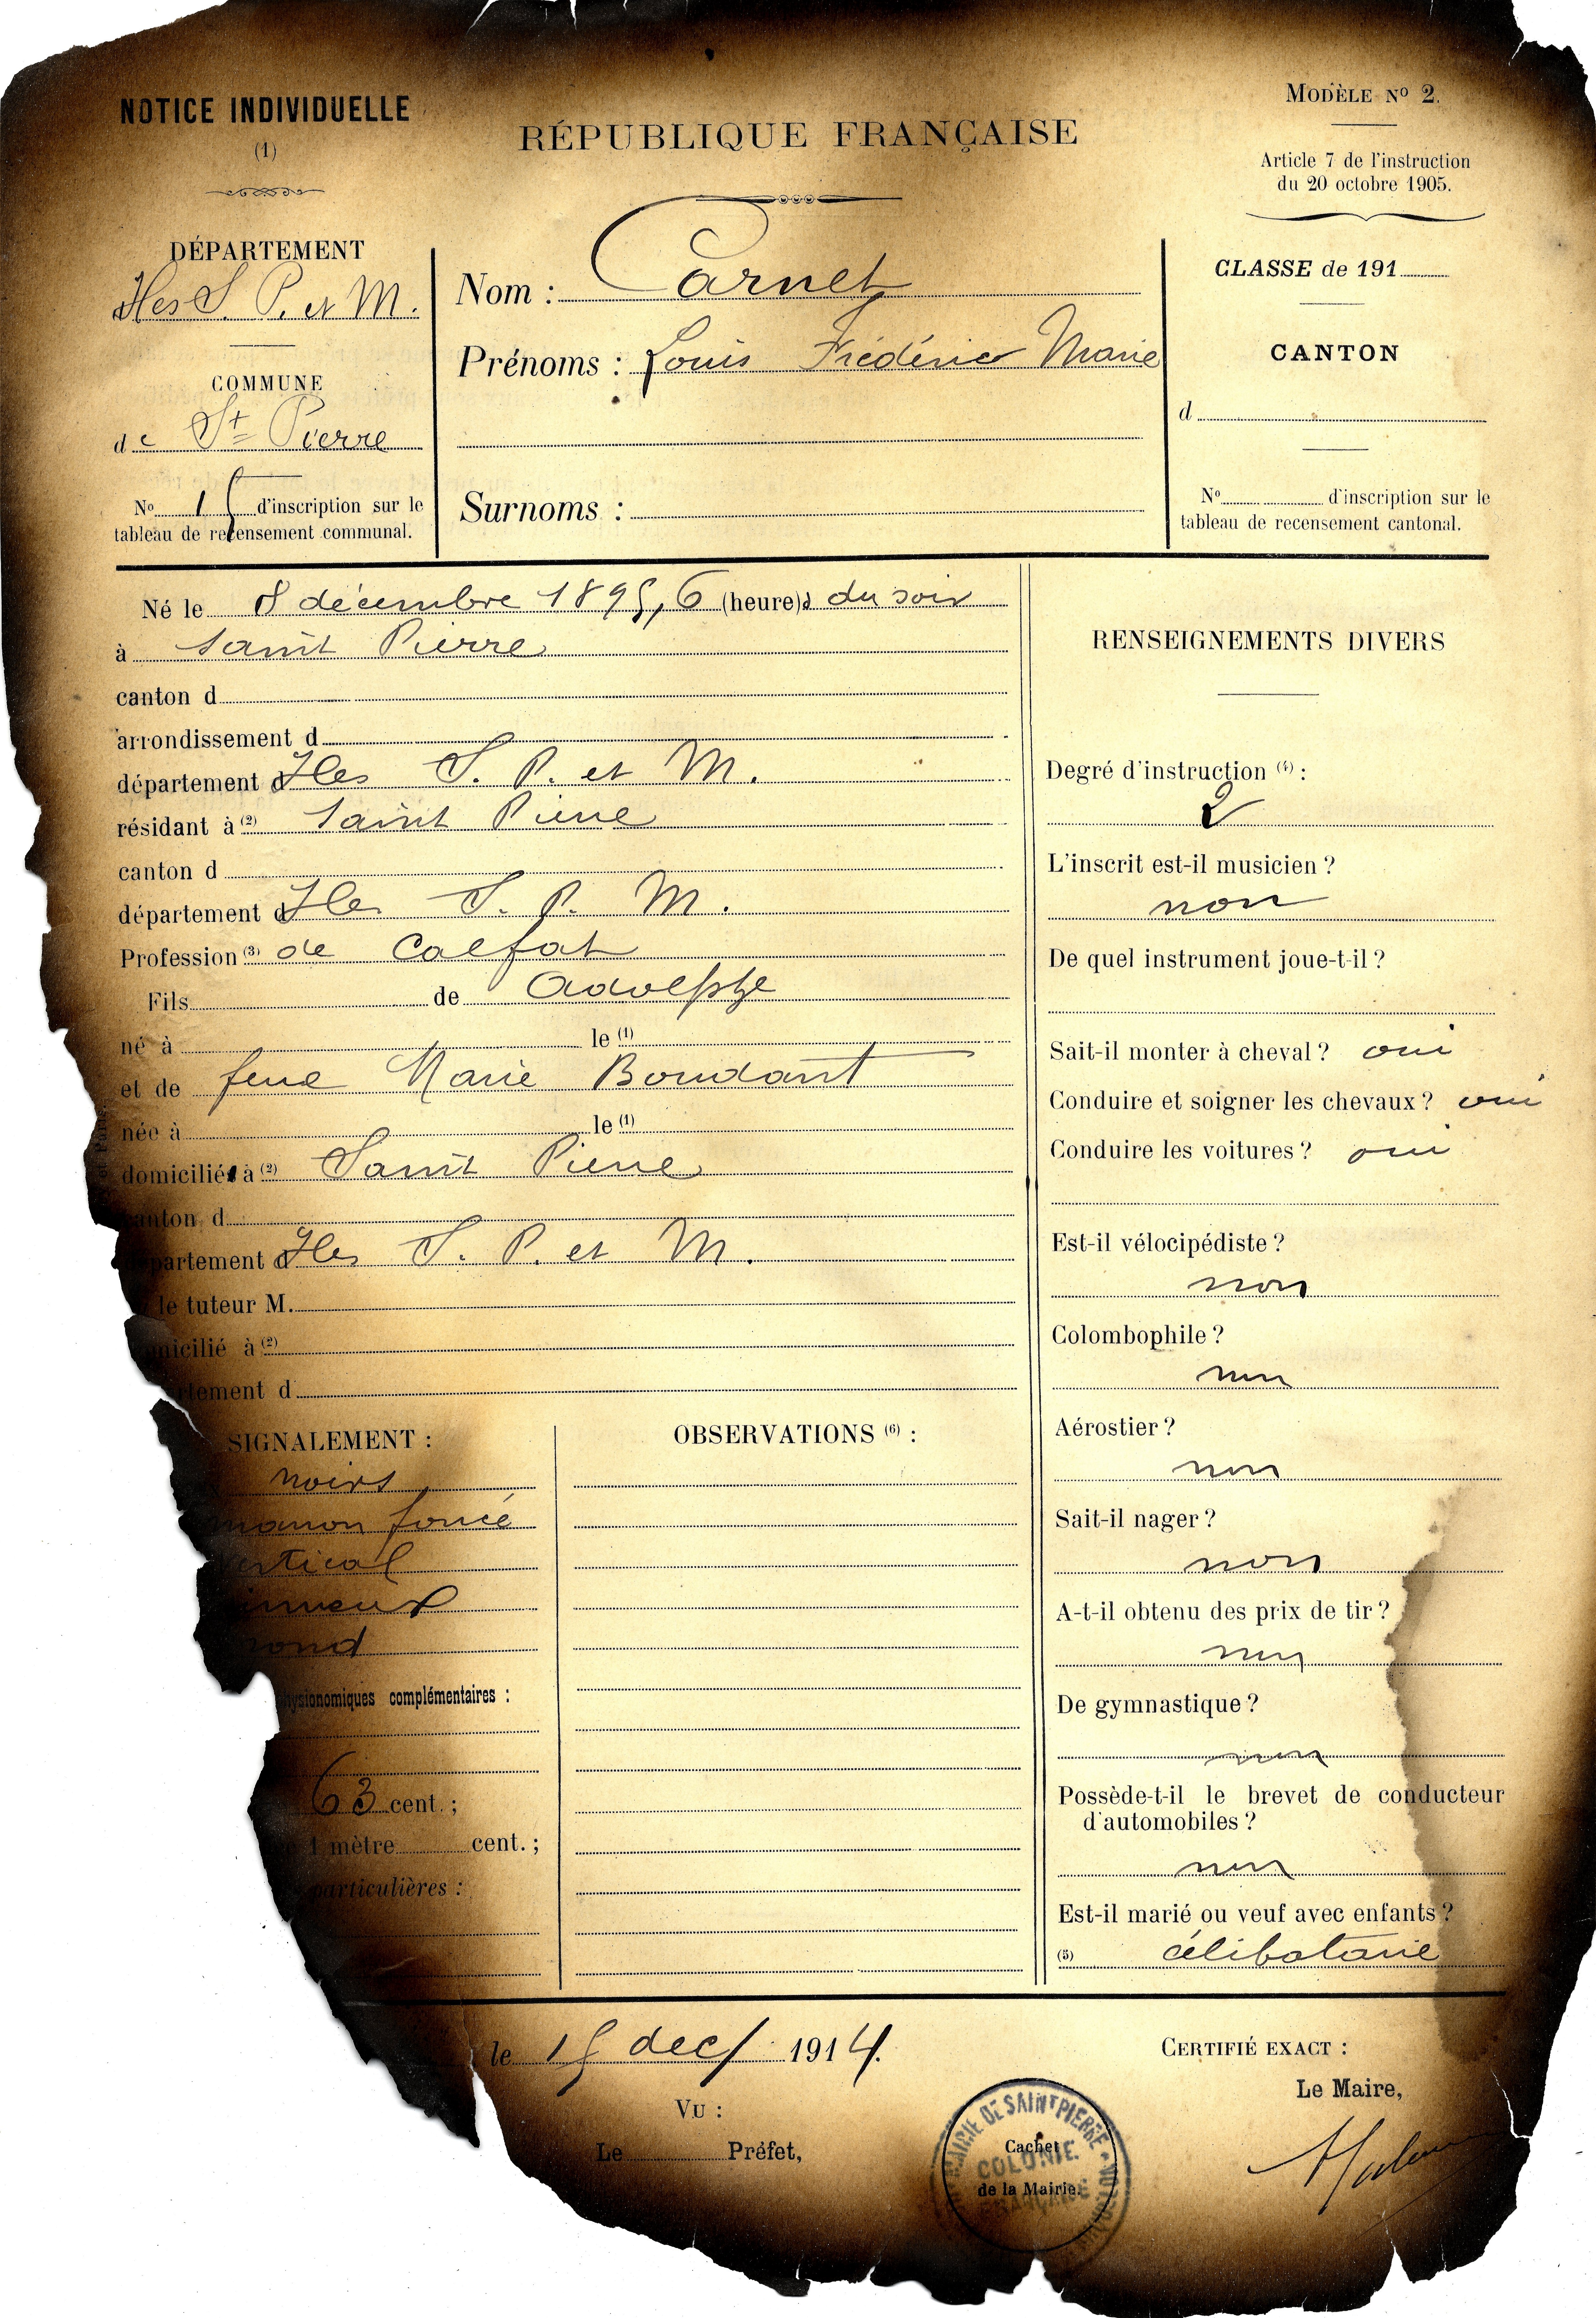 NOTICE INDIVIDUELLE
(1)
DÉPARTEMENT
Iles S. P. et M.
COMMUNE
de St Pierre
No 15 d'inscription sur le
tableau de recensement communal.
RÉPUBLIQUE FRANÇAISE
Nom : Carnet
Prénoms : Louis Frédéric Marie
Surnoms :
MODÈLE No 2.
Article 7 de l'instruction
du 20 octobre 1905.
CLASSE de 191
CANTON
d
No d'inscription sur le
tableau de recensement cantonal.
Né le 8 décembre 1895, 6 (heure) du soir
à Saint Pierre
canton d
arrondissement d
département d Iles S. P. et M.
résidant à (2) Saint Pierre
canton d
département d Iles S. P. M.
Profession (3) de Calfat
Fils de Adolphe
né à le (1)
et de feue Marie Boudant
née à le (1)
domiciliés à (2) Saint Pierre
canton d
partement d Iles S. P. et M.
le tuteur M.
icilié à (2)
tement d
SIGNALEMENT :
noirs
marron foncé
ertical
rond
hysionomiques complémentaires :
63 cent. ;
1 mètre cent. ;
particulières :
OBSERVATIONS (6) :
RENSEIGNEMENTS DIVERS
Degré d'instruction (4) :
2
L'inscrit est-il musicien ?
non
De quel instrument joue-t-il ?
Sait-il monter à cheval ? oui
Conduire et soigner les chevaux ? oui
Conduire les voitures ? oui
Est-il vélocipédiste ?
non
Colombophile ?
non
Aérostier ?
non
Sait-il nager ?
non
A-t-il obtenu des prix de tir ?
non
De gymnastique ?
non
Possède-t-il le brevet de conducteur
d'automobiles ?
non
Est-il marié ou veuf avec enfants ?
(5) célibataire
le 15 dec/ 1914.
VU :
Le Préfet,
MAIRIE DE SAINT PIERRE
COLONIE
FRANÇAISE
Cachet
de la Mairie.
CERTIFIÉ EXACT :
Le Maire,